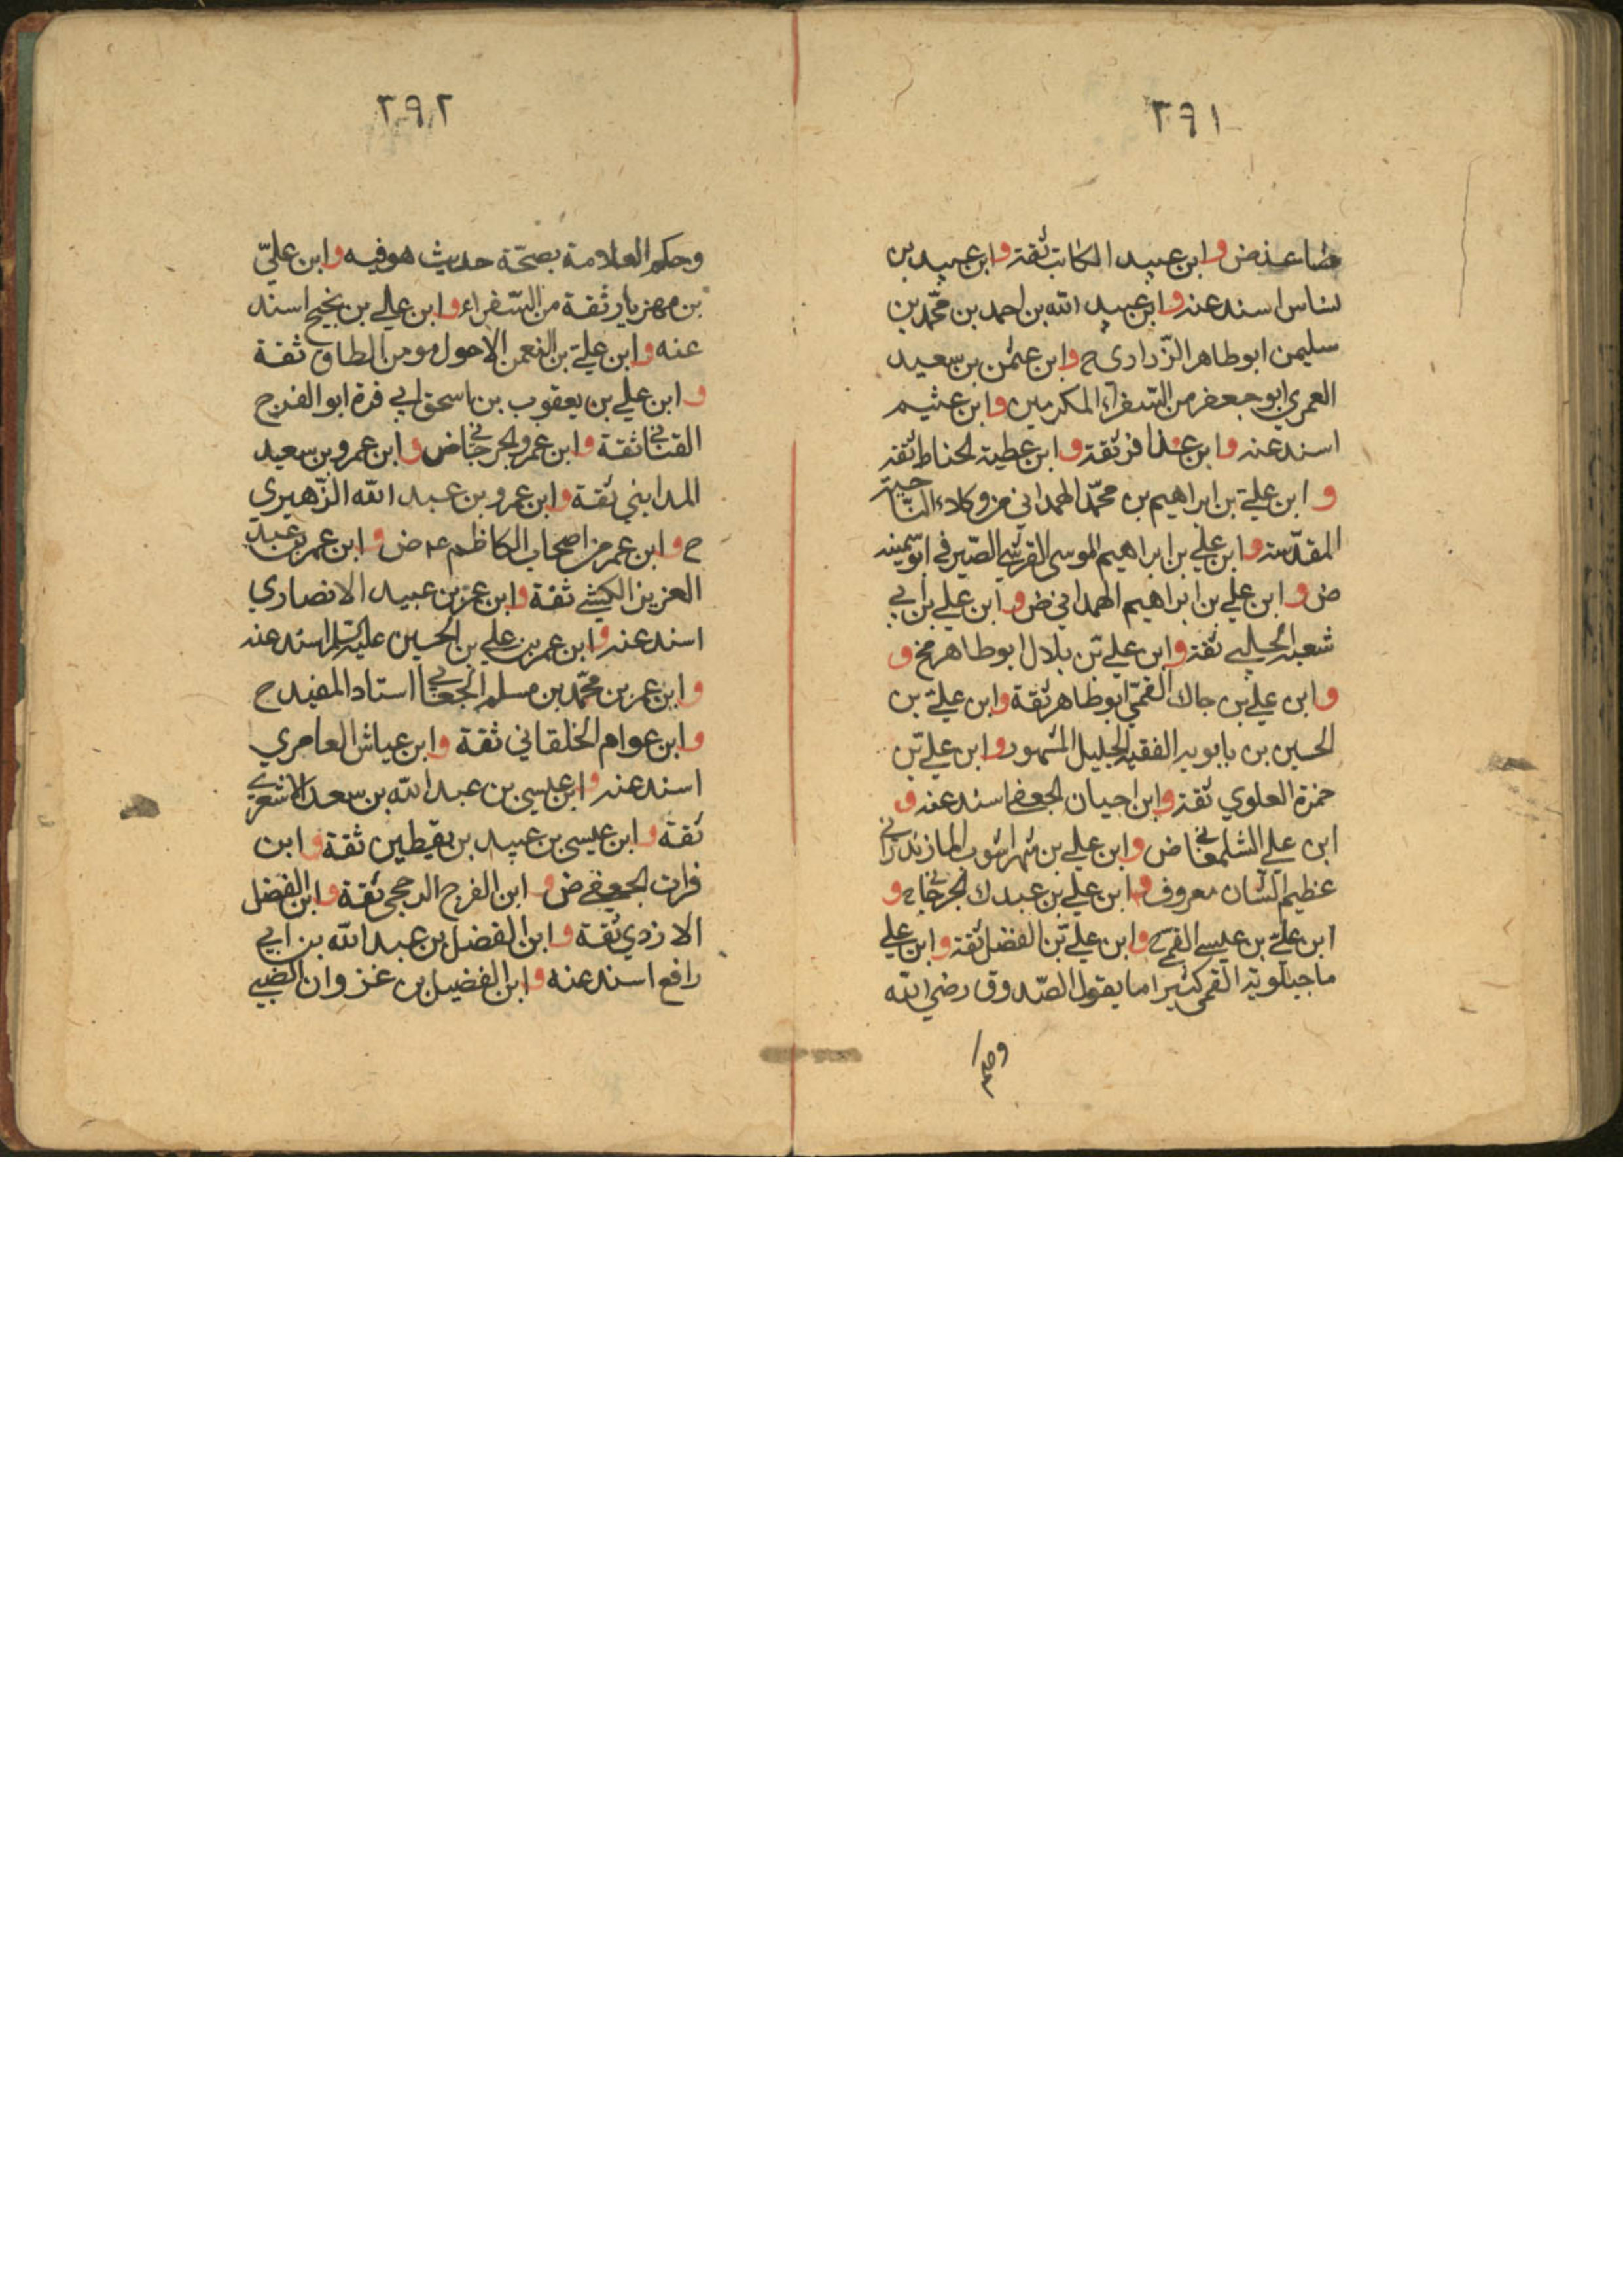 ٣٩١
وابن عبيد الكاتب ثقة وابن عبيد بن
اسند عنه وابن عبيد الله بن احمد بن محمد بن
سليمن ابو طاهر الزراري ح وابن عثمن بن سعيد
العمري ابو جعفر من السفراء المكرمين وابن عثيم
اسند عنه وابن عذافر ثقة وابن عطية الحناط ثقة
وابن علي بن ابراهيم بن محمد الهمداني من وكلاء الناحية
المقدسة وابن علي بن ابراهيم الموسى القرشي الصيرفي ابو سمينه
ض وابن علي بن ابراهيم الهمداني ض وابن علي بن ابي
شعبة الحلبي ثقة وابن علي بن بلال ابو طاهر مخ و
وابن علي بن جاك القمي ابو طاهر ثقة وابن علي بن
الحسين بن بابويه الفقيه الجليل المشهور وابن علي بن
حمزة العلوي ثقة وابن احيان الجعفي اسند عنه و
ابن علي الشلمغاني ض وابن علي بن شهراشوب المازندراني
عظيم الشان معروف وابن علي بن عبدك الجرجاني ح و
ابن علي بن عيسى القمي ح وابن علي بن الفضل ثقة وابن علي
ماجيلويه القمي كثيرا ما يقول الصدوق رضي الله
وحكم
٣٩٢
وحكم العلامة بصحة حديث هو فيه وابن علي
بن مهزيار ثقة من السفراء وابن علي بن نجيح اسند
عنه وابن علي بن النعمن الاحول مومن الطاق ثقة
وابن علي بن يعقوب بن اسحق ابي قرة ابو الفرج
القناني ثقة وابن عمرو الجرجاني ض وابن عمرو بن سعيد
المدايني ثقة وابن عمرو بن عبد الله الزهيري
ح وابن عمر من اصحاب الكاظم ع ض وابن عمر بن عبد
العزيز الكشي ثقة وابن عمر بن عبيد الانصاري
اسند عنه وابن عمر بن علي بن الحسين عليه السلم اسند عنه
وابن عمر بن محمد بن مسلم الجعابي استاد المفيد ح
وابن عوام الخلقاني ثقة وابن عياش العامري
اسند عنه وابن عيسى بن عبد الله بن سعد الاشعري
ثقة وابن عيسى بن عبيد بن يقطين ثقة وابن
فرات الجعفي ض وابن الفرج الرخجي ثقة وابن الفضل
الازدي ثقة وابن الفضل بن عبد الله بن ابي
رافع اسند عنه وابن الفضيل بن غزوان الضبي